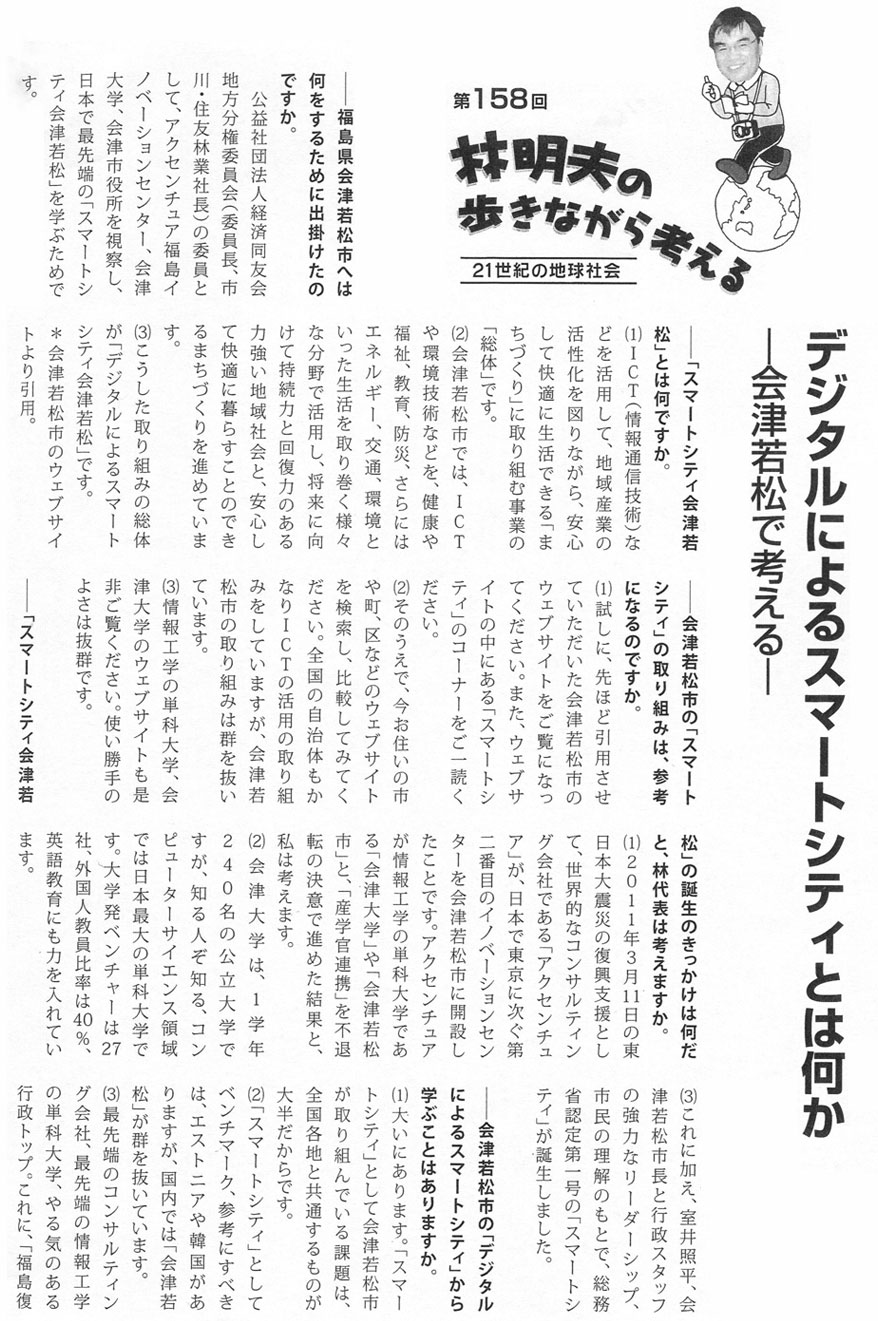 第158回
林明夫の
歩きながら考える
21世紀の地球社会
デジタルによるスマートシティとは何か
―会津若松で考える―
――福島県会津若松市へは
何をするために出掛けたの
ですか。
公益社団法人経済同友会
地方分権委員会（委員長、市
川・住友林業社長）の委員と
して、アクセンチュア福島イ
ノベーションセンター、会津
大学、会津市役所を視察し、
日本で最先端の「スマートシ
ティ会津若松」を学ぶためで
す。
――「スマートシティ会津若
松」とは何ですか。
⑴ＩＣＴ（情報通信技術）な
どを活用して、地域産業の
活性化を図りながら、安心
して快適に生活できる「ま
ちづくり」に取り組む事業の
「総体」です。
⑵会津若松市では、ＩＣＴ
や環境技術などを、健康や
福祉、教育、防災、さらには
エネルギー、交通、環境と
いった生活を取り巻く様々
な分野で活用し、将来に向
けて持続力と回復力のある
力強い地域社会と、安心し
て快適に暮らすことのでき
るまちづくりを進めていま
す。
⑶こうした取り組みの総体
が「デジタルによるスマート
シティ会津若松」です。
＊会津若松市のウェブサイ
トより引用。
――会津若松市の「スマート
シティ」の取り組みは、参考
になるのですか。
⑴試しに、先ほど引用させ
ていただいた会津若松市の
ウェブサイトをご覧になっ
てください。また、ウェブサ
イトの中にある「スマートシ
ティ」のコーナーをご一読く
ださい。
⑵そのうえで、今お住いの市
や町、区などのウェブサイト
を検索し、比較してみてく
ださい。全国の自治体もか
なりＩＣＴの活用の取り組
みをしていますが、会津若
松市の取り組みは群を抜い
ています。
⑶情報工学の単科大学、会
津大学のウェブサイトも是
非ご覧ください。使い勝手の
よさは抜群です。
――「スマートシティ会津若
松」の誕生のきっかけは何だ
と、林代表は考えますか。
⑴２０１１年３月11日の東
日本大震災の復興支援とし
て、世界的なコンサルティン
グ会社である「アクセンチュ
ア」が、日本で東京に次ぐ第
二番目のイノベーションセン
ターを会津若松市に開設し
たことです。アクセンチュア
が情報工学の単科大学であ
る「会津大学」や「会津若松
市」と、「産学官連携」を不退
転の決意で進めた結果と、
私は考えます。
⑵会津大学は、１学年
２４０名の公立大学で
すが、知る人ぞ知る、コン
ピューターサイエンス領域
では日本最大の単科大学で
す。大学発ベンチャーは27
社、外国人教員比率は40％、
英語教育にも力を入れてい
ます。
⑶これに加え、室井照平、会
津若松市長と行政スタッフ
の強力なリーダーシップ、
市民の理解のもとで、総務
省認定第一号の「スマートシ
ティ」が誕生しました。
――会津若松市の「デジタル
によるスマートシティ」から
学ぶことはありますか。
⑴大いにあります。「スマー
トシティ」として会津若松市
が取り組んでいる課題は、
全国各地と共通するものが
大半だからです。
⑵「スマートシティ」として
ベンチマーク、参考にすべき
は、エストニアや韓国があ
りますが、国内では「会津若
松」が群を抜いています。
⑶最先端のコンサルティン
グ会社、最先端の情報工学
の単科大学、やる気のある
行政トップ。これに、「福島復